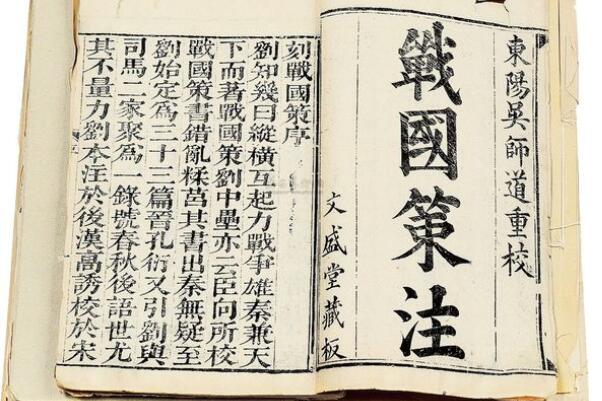 東陽吳師道重校
戰國策注
文盛堂藏板
刻戰國策序
劉知幾曰縱橫互起力戰爭雄秦兼天
下而著戰國策劉中壘亦云臣向所校
戰國策書錯亂糅莒其書出秦無疑至
劉始定爲三十三篇晉孔衍又引劉與
司馬二家聚爲一錄號春秋後語世尤
其不量力劉本注於後漢高誘校於宋